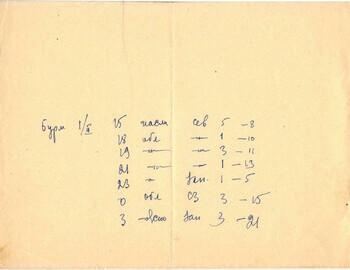 Бурм 1/II 15 пасм сев 5 -8
18 обл -"- 1 -10
19 -"- -"- 3 -11
21 -"- -"- 1 -13
23 -"- Зап. 1 -5
0 обл СЗ 3 -15
3 Зап 3 -21